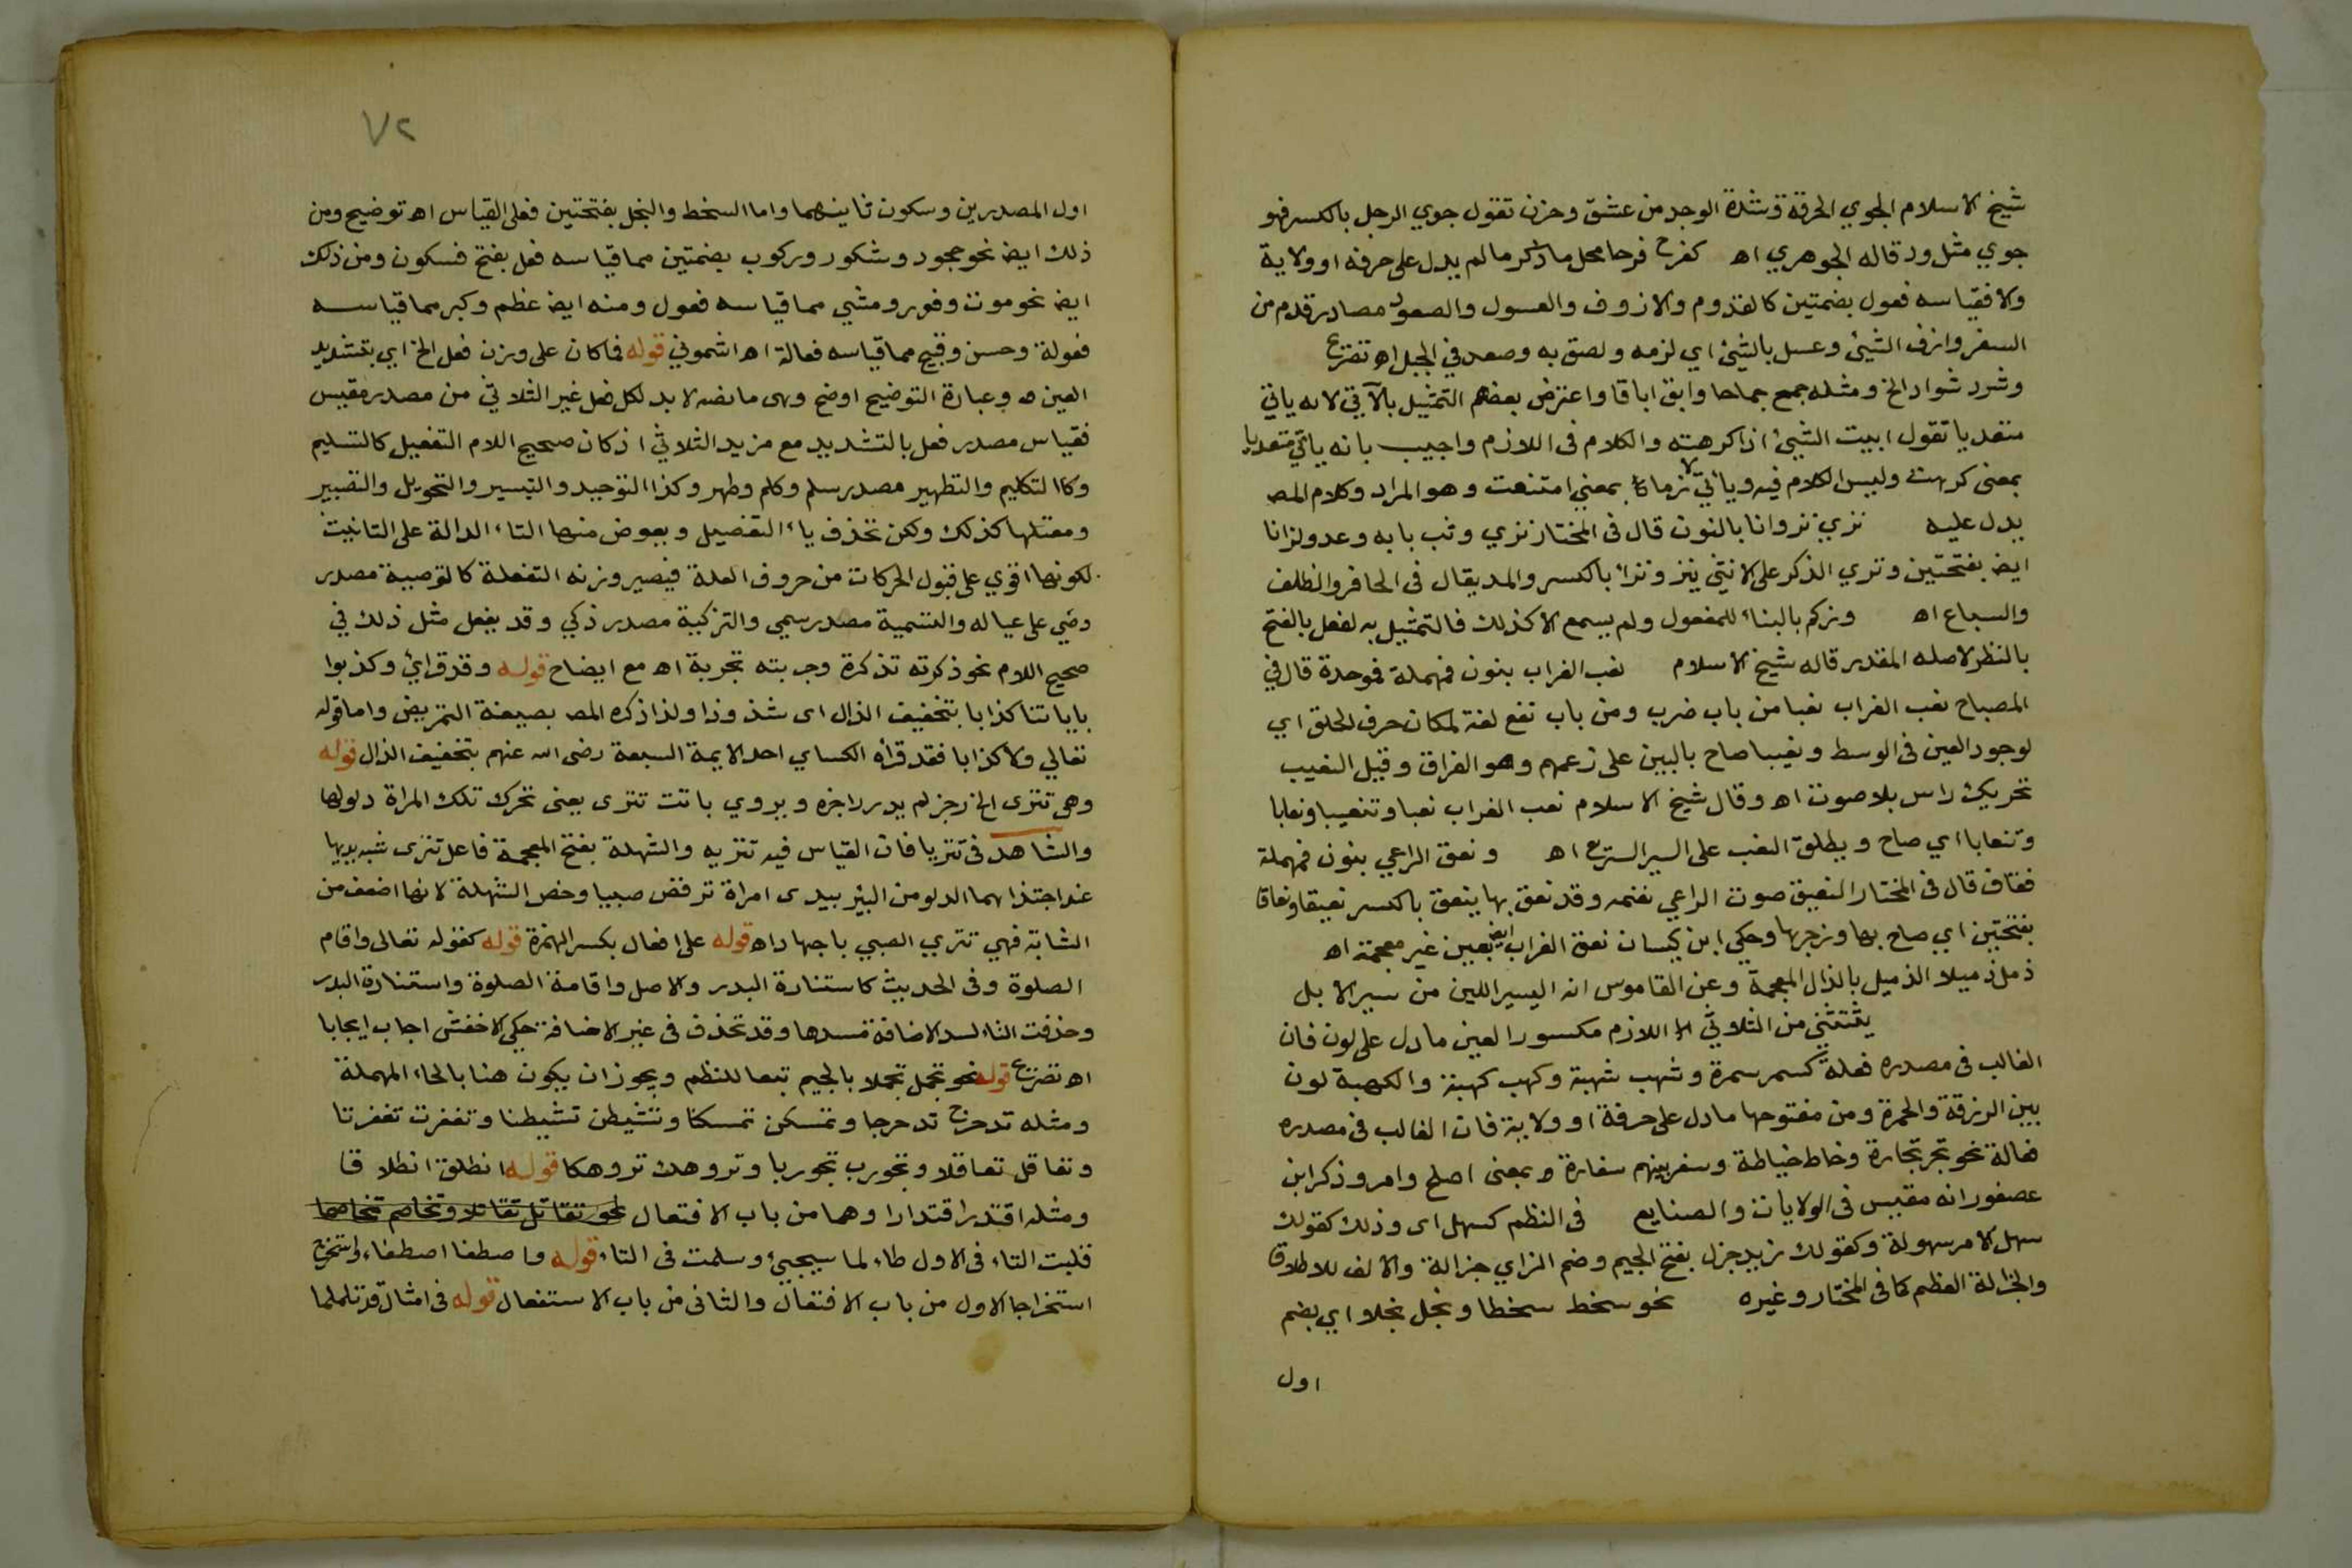 شيخ الاسلام الجوي الحرقة وشدة الوجد من عشق وحزن تقول جوي الرجل بالكسر فهو
جوي مثل ود قاله الجوهري اه كفرح فرحا محل ما ذكر ما لم يدل على حرفة او ولاية
ولا فقياسه فعول بضمتين كالقدوم والازوف والعسول والصعود مصادر قدم من
السفر وازف الشيئ وعسل بالشيئ اي لزمه ولصق به وصعد في الجبل اه تصريح
وشرد شرادا الخ ومثله جمح جماحا وابق اباقا واعترض بعضهم التمثيل بالآتي لانه ياتي
متعديا تقول ابيت الشيئ اذا كرهته والكلام فى اللازم واجيب بانه ياتي متعديا
بمعنى كرهت وليس الكلام فيه وياتي لازما بمعني امتنعت وهو المراد وكلام المص
يدل عليه نزي نزوانا بالنون قال فى المختار نزي وثب بابه وعدو لزانا
ايض بفتحتين ونزي الذكر على الانثي ينز ونزاء بالكسر والمد يقال فى الحافر والظلف
والسباع اه وزكم بالبناء للمفعول ولم يسمع الا كذلك فالتمثيل به لفعل بالفتح
بالنظر لاصله المقدر قاله شيخ الاسلام نعب الغراب بنون فمهملة فموحدة قال في
المصباح نعب الغراب نعبا من باب ضرب ومن باب نفع لغة لمكان حرف الحلق اي
لوجود العين فى الوسط ونعيبا صاح بالبين على زعمهم وهو الفراق وقيل النعيب
تحريك راس بلا صوت اه وقال شيخ الاسلام نعب الغراب نعبا وتنعيبا ونعابا
وتنعابا اي صاح ويطلق النعب على السير السريع اه ونعق الراعي بنون فمهملة
فقاف قال فى المختار النعيق صوت الراعي بغنمه وقد نعق بها ينعق بالكسر نعيقا ونعاقا
بفتحتين اي صاح بها وزجرها وحكي ابن كيسان نعق الغراب ايض بعين غير معجمة اه
ذمل ذميلا الذميل بالذال المعجمة وعن القاموس انه السير اللين من سير الابل
يستثني من الثلاثي اللازم مكسور العين ما دل على لون فان
الغالب فى مصدره فعلة كسمر سمرة وشهب شهبة وكهب كهبة والكهبة لون
بين الزرقة والحمرة ومن مفتوحها ما دل على حرفة او ولاية فان الغالب فى مصدره
فعالة نحو تجر تجارة وخاط خياطة وسفر بينهم سفارة بمعنى اصلح وامر وذكر ابن
عصفور انه مقيس فى الولايات والصنايع فى النظم كسهل اى وذلك كقولك
سهل الامر سهولة وكقولك زيد جزل بفتح الجيم وضم الزاي جزالة والالف للاطلاق
والجزالة العظم كما فى المختار وغيره نحو سخط سخطا وبخل بخلا اي بضم
اول
٧٢
اول المصدرين وسكون ثانيهما واما السخط والبخل بفتحتين فعلى القياس اه توضيح ومن
ذلك ايض نحو جحود وشكور وركوب بضمتين مما قياسه فعل بفتح فسكون ومن ذلك
ايض نحو موت وفوز ومشي مما قياسه فعول ومنه ايض عظم وكبر مما قياسه
فعولة وحسن وقبح مما قياسه فعالة اه اشموني قوله فما كان على وزن فعل الخ اي بتشديد
العين ه وعبارة التوضيح اوضح وهى ما نصه لا بد لكل فعل غير الثلاثي من مصدر مقيس
فقياس مصدر فعل بالتشديد مع مزيد الثلاثي اذ كان صحيح اللام التفعيل كالتسليم
وكالتكليم والتطهير مصدر سلم وكلم وطهر وكذا التوحيد والتيسير والتحويل والتصيير
ومعتلها كذلك ولكن تحذف ياء التفعيل ويعوض منها التاء الدالة على التانيث
لكونها اقوي على قبول الحركات من حروف العلة فيصير وزنه التفعلة كالتوصية مصدر
وصي على عياله والتسمية مصدر سمي والتزكية مصدر زكي وقد يفعل مثل ذلك في
صحيح اللام نحو ذكرته تذكرة وجربته تجربة اه مع ايضاح قوله وقد قرائ وكذبوا
باياتنا كذابا بتخفيف الذال اى شذوذا ولذا ذكره المص بصيغة التمريض واما قوله
تعالي ولا كذابا فقد قراه الكساي احد الايمة السبعة رضى الله عنهم بتخفيف الذال قوله
وهى تنزى الخ رجز لم يدر راجزه ويروي باتت تنزى يعنى تحرك تلك المراة دلوها
والشاهد فى تنزيا فان القياس فيه تنزيه والشهلة بفتح المعجمة فاعل تنزى شبه يديها
عند اجتذابهما الدلو من البئر بيدى امراة ترقص صبيا وخص الشهلة لانها اضعف من
الشابة فهي تنزي الصبي باجهاد اه قوله على افعال بكسر الهمزة قوله كقوله تعالى واقام
الصلوة وفى الحديث كاستنارة البدر والاصل واقامة الصلوة واستنارة البدر
وحذفت التاء لسد الاضافة مسدها وقد تحذف فى غير الاضافة حكي الاخفش اجاب ايجابا
اه تصريح قوله نحو تجمل تجملا بالجيم تبعا للنظم ويجوز ان يكون هنا بالحاء المهملة
ومثله تدحرج تدحرجا وتمسكن تمسكنا وتشيطن تشيطنا وتعفرت تعفرتا
وتغافل تغافلا وتجورب تجوربا وتروهك تروهكا قوله انطلق انطلاقا
ومثله اقتدر اقتدارا وهما من باب الافتعال نحو تقاتل تقاتلا وتخاصم تخاصما
قلبت التاء فى الاول طاء لما سيجيئ وسلمت فى التاء قوله واصطفا اصطفاء واستخرج
استخراجا الاول من باب الافتعال والثانى من باب الاستفعال قوله فى امثال قد تلملما